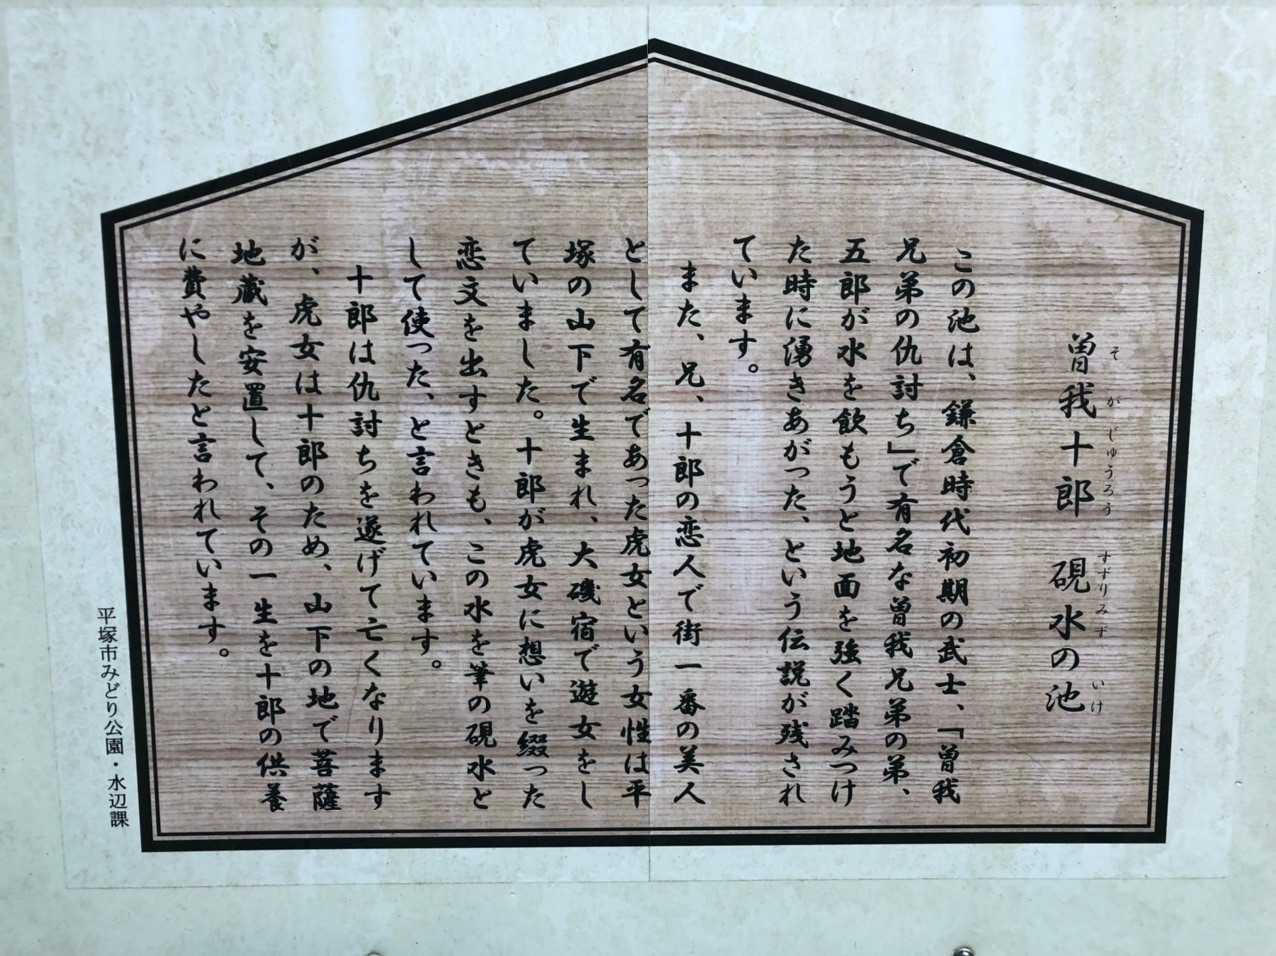 曽我十郎　硯水の池
そ　が　じゅうろう　すずりみず　いけ
この池は、鎌倉時代初期の武士、「曽我
兄弟の仇討ち」で有名な曽我兄弟の弟、
五郎が水を飲もうと地面を強く踏みつけ
た時に湧きあがった、という伝説が残され
ています。
また、兄、十郎の恋人で街一番の美人
として有名であった虎女という女性は平
塚の山下で生まれ、大磯宿で遊女をし
ていました。十郎が虎女に想いを綴った
恋文を出すときも、この水を筆の硯水と
して使った、と言われています。
十郎は仇討ちを遂げて亡くなります
が、虎女は十郎のため、山下の地で菩薩
地蔵を安置して、その一生を十郎の供養
に費やしたと言われています。
平塚市みどり公園・水辺課